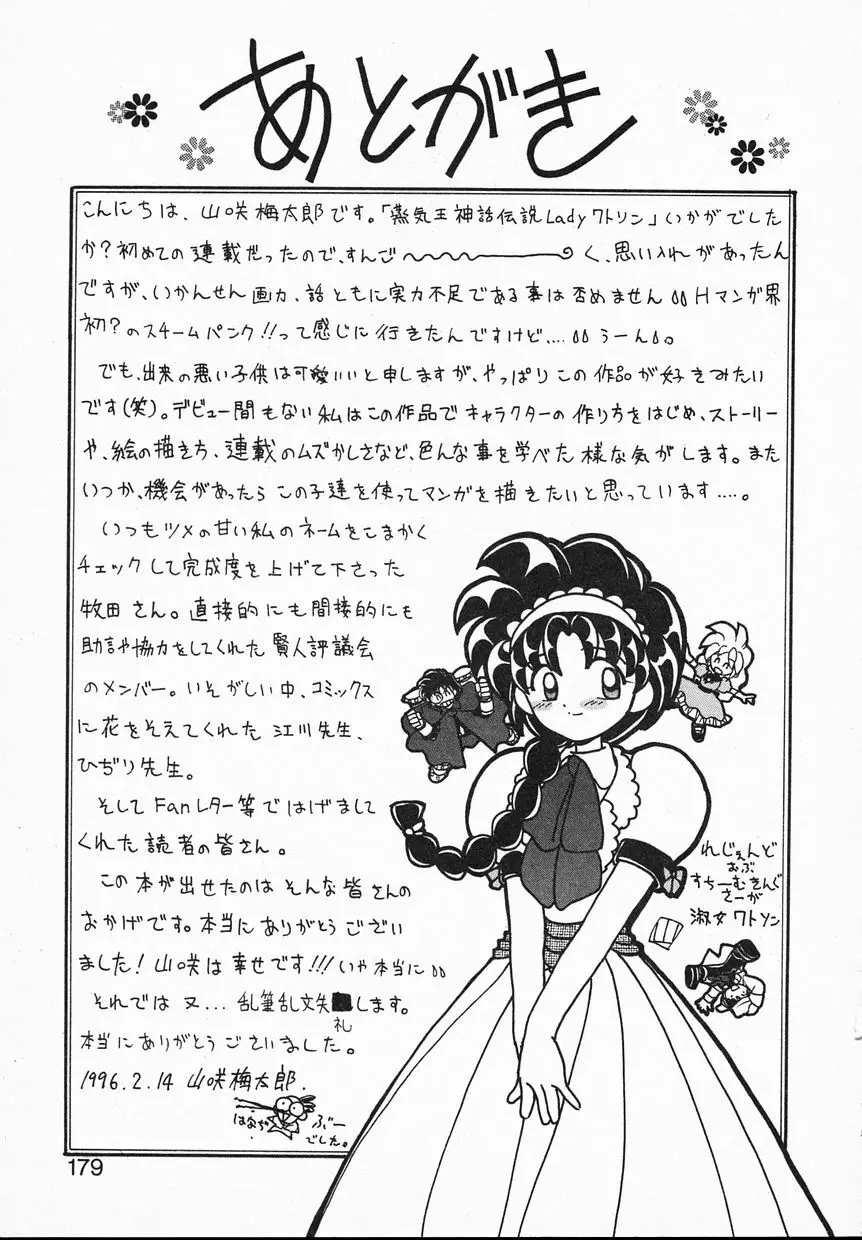 あとがき
こんにちは、山咲梅太郎です。「蒸気王神話伝説Ladyワトソン」いかがでした
か?初めての連載だったので、すんご〜〜〜〜〜〜く、思い入れがあったん
ですが、いかんせん画力、話ともに実力不足である事は否めません Hマンガ界
初?のスチームパンク!!って感じに行きたんですけど、... うーん。
でも、出来の悪い子供は可愛いいと申しますが、やっぱりこの作品が好きみたい
です(笑)。デビュー間もない私はこの作品でキャラクターの作り方をはじめ、ストーリー
や、絵の描き方、連載のムズかしさなど、色んな事を学べた様な気がします。また
いつか、機会があったらこの子達を使ってマンガを描きたいと思っています....。
いつもツメの甘い私のネームをこまかく
チェックして完成度を上げて下さった
牧田さん。直接的にも間接的にも
助言や協力をしてくれた賢人評議会
のメンバー。いそがしい中、コミックス
に花をそえてくれた江川先生、
ひぢり先生。
そしてFanレター等ではげまして
くれた読者の皆さん。
この本が出せたのはそんな皆さんの
おかげです。本当にありがとうござい
ました!山咲は幸せです!!!いや本当に
それでは又...乱筆乱文失礼します。
本当にありがとうございました。
1996.2.14 山咲梅太郎.
はなぢ
ぶー
でした。
れじぇんど
おぶ
すちーむきんぐ
さーが
淑女ワトソン
179